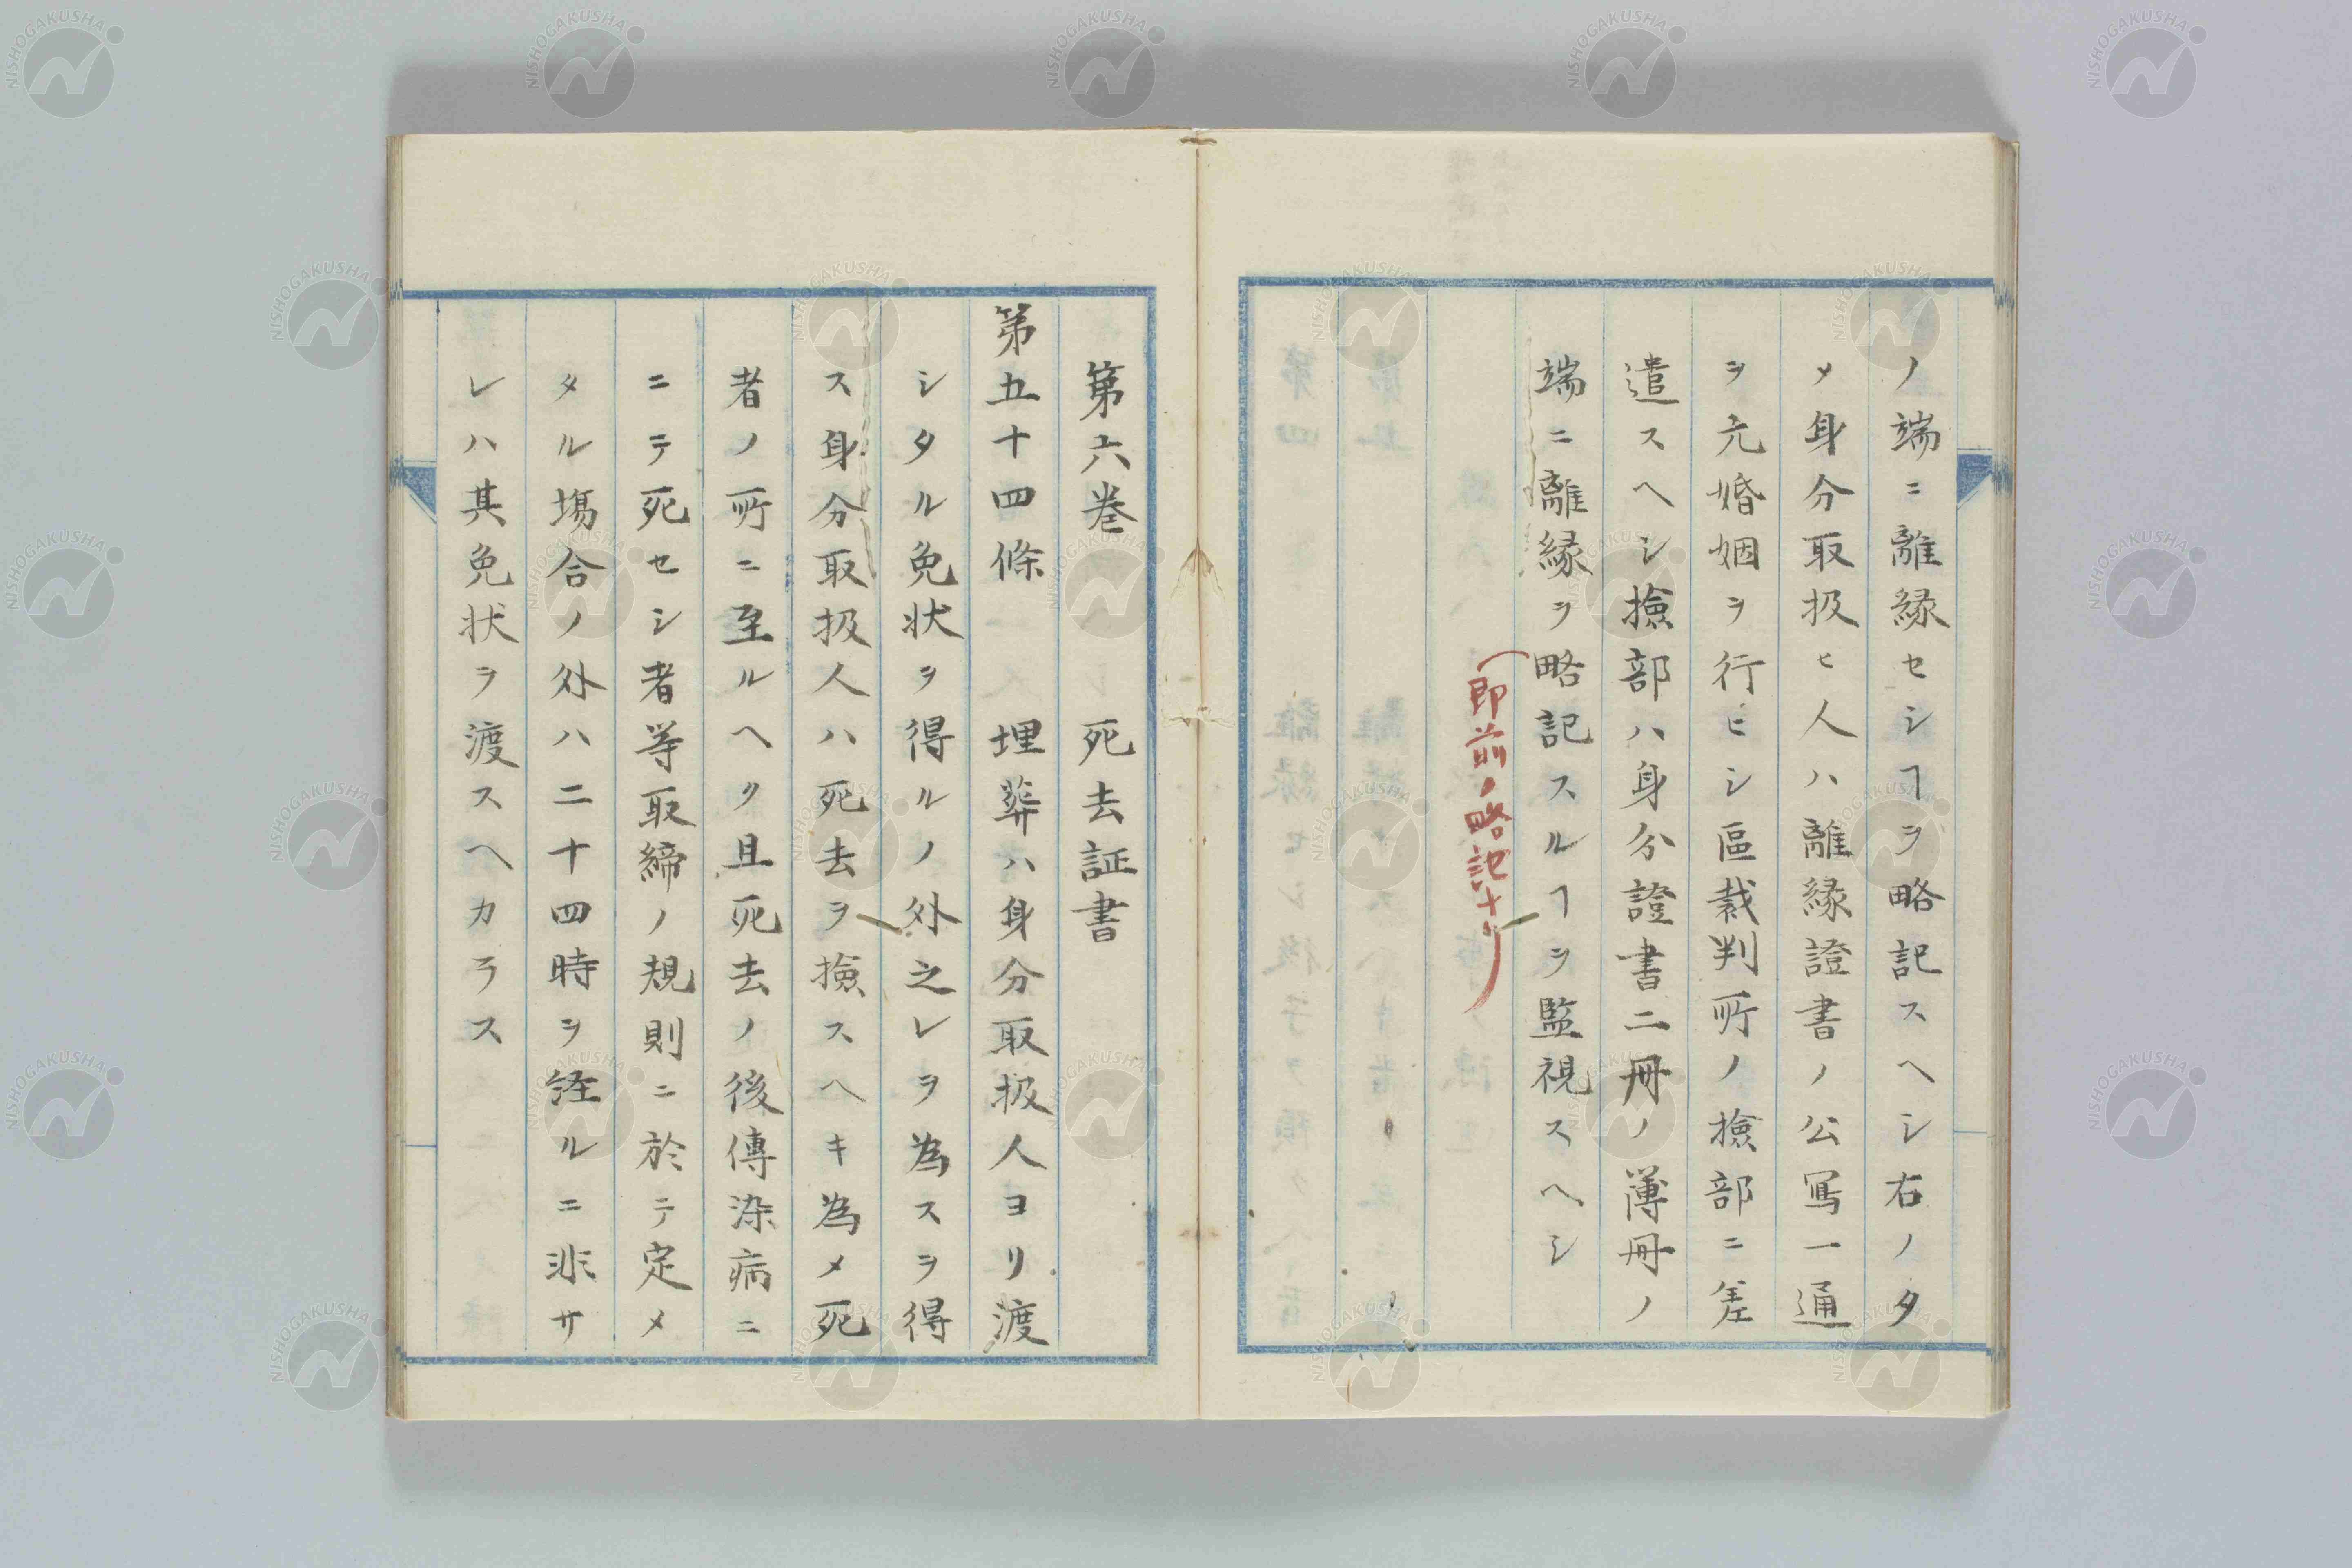 ノ端ニ離縁セシヿヲ略記スヘシ右ノタ
メ身分取扱ヒ人ハ離縁證書ノ公写一通
ヲ元婚姻ヲ行ヒシ區裁判所ノ撿部ニ差
遣スヘシ撿部ハ身分證書二冊ノ簿冊ノ
端ニ離縁ヲ略記スルヿヲ監視スヘシ
(即前ノ略記ナリ)
第六巻 死去証書
第五十四條 埋葬ハ身分取扱人ヨリ渡
シタル免状ヲ得ルノ外之レヲ為スヲ得
ス身分取扱人ハ死去ヲ撿スヘキ為メ死
者ノ所ニ至ルヘク且死去ノ後傳染病ニ
ニテ死セシ者等取締ノ規則ニ於テ定メ
タル塲合ノ外ハ二十四時ヲ経ルニ非サ
レハ其免状ヲ渡スヘカラス
NISHOGAKUSHA